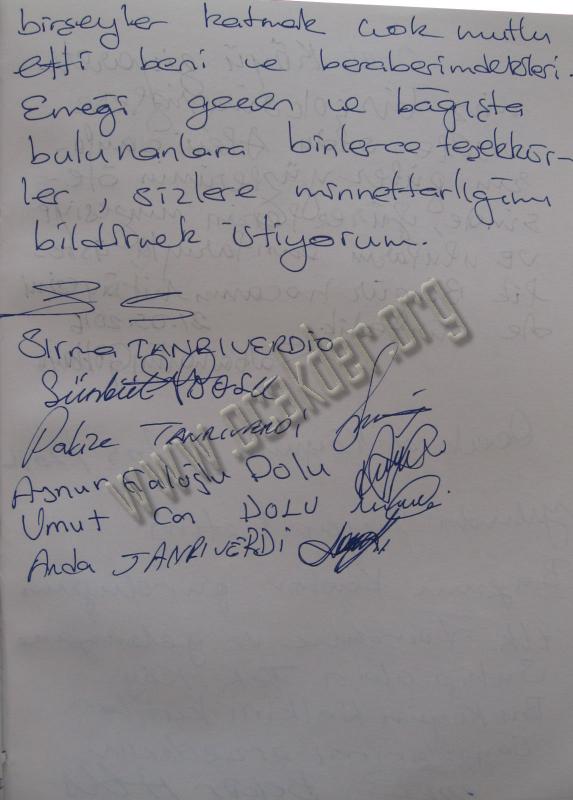 birşeyler katmak çok mutlu
etti beni ve beraberimdekileri.
Emeği geçen ve bağışta
bulunanlara binlerce teşekkür-
ler, sizlere minnettarlığımı
bildirmek istiyorum.
Sırma TANRIVERDİ
Sünbül
Pakize TANRIVERDİ
Aynur DOLU
Umut Can DOLU
Arda TANRIVERDİ
www.ocakder.org